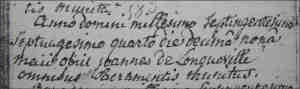 tis munita
Anno domini millesimo septingentesimo
septuagesimo quarto die decima nona
maii obiit joannes de Longueville
omnibus sacramentis munitus